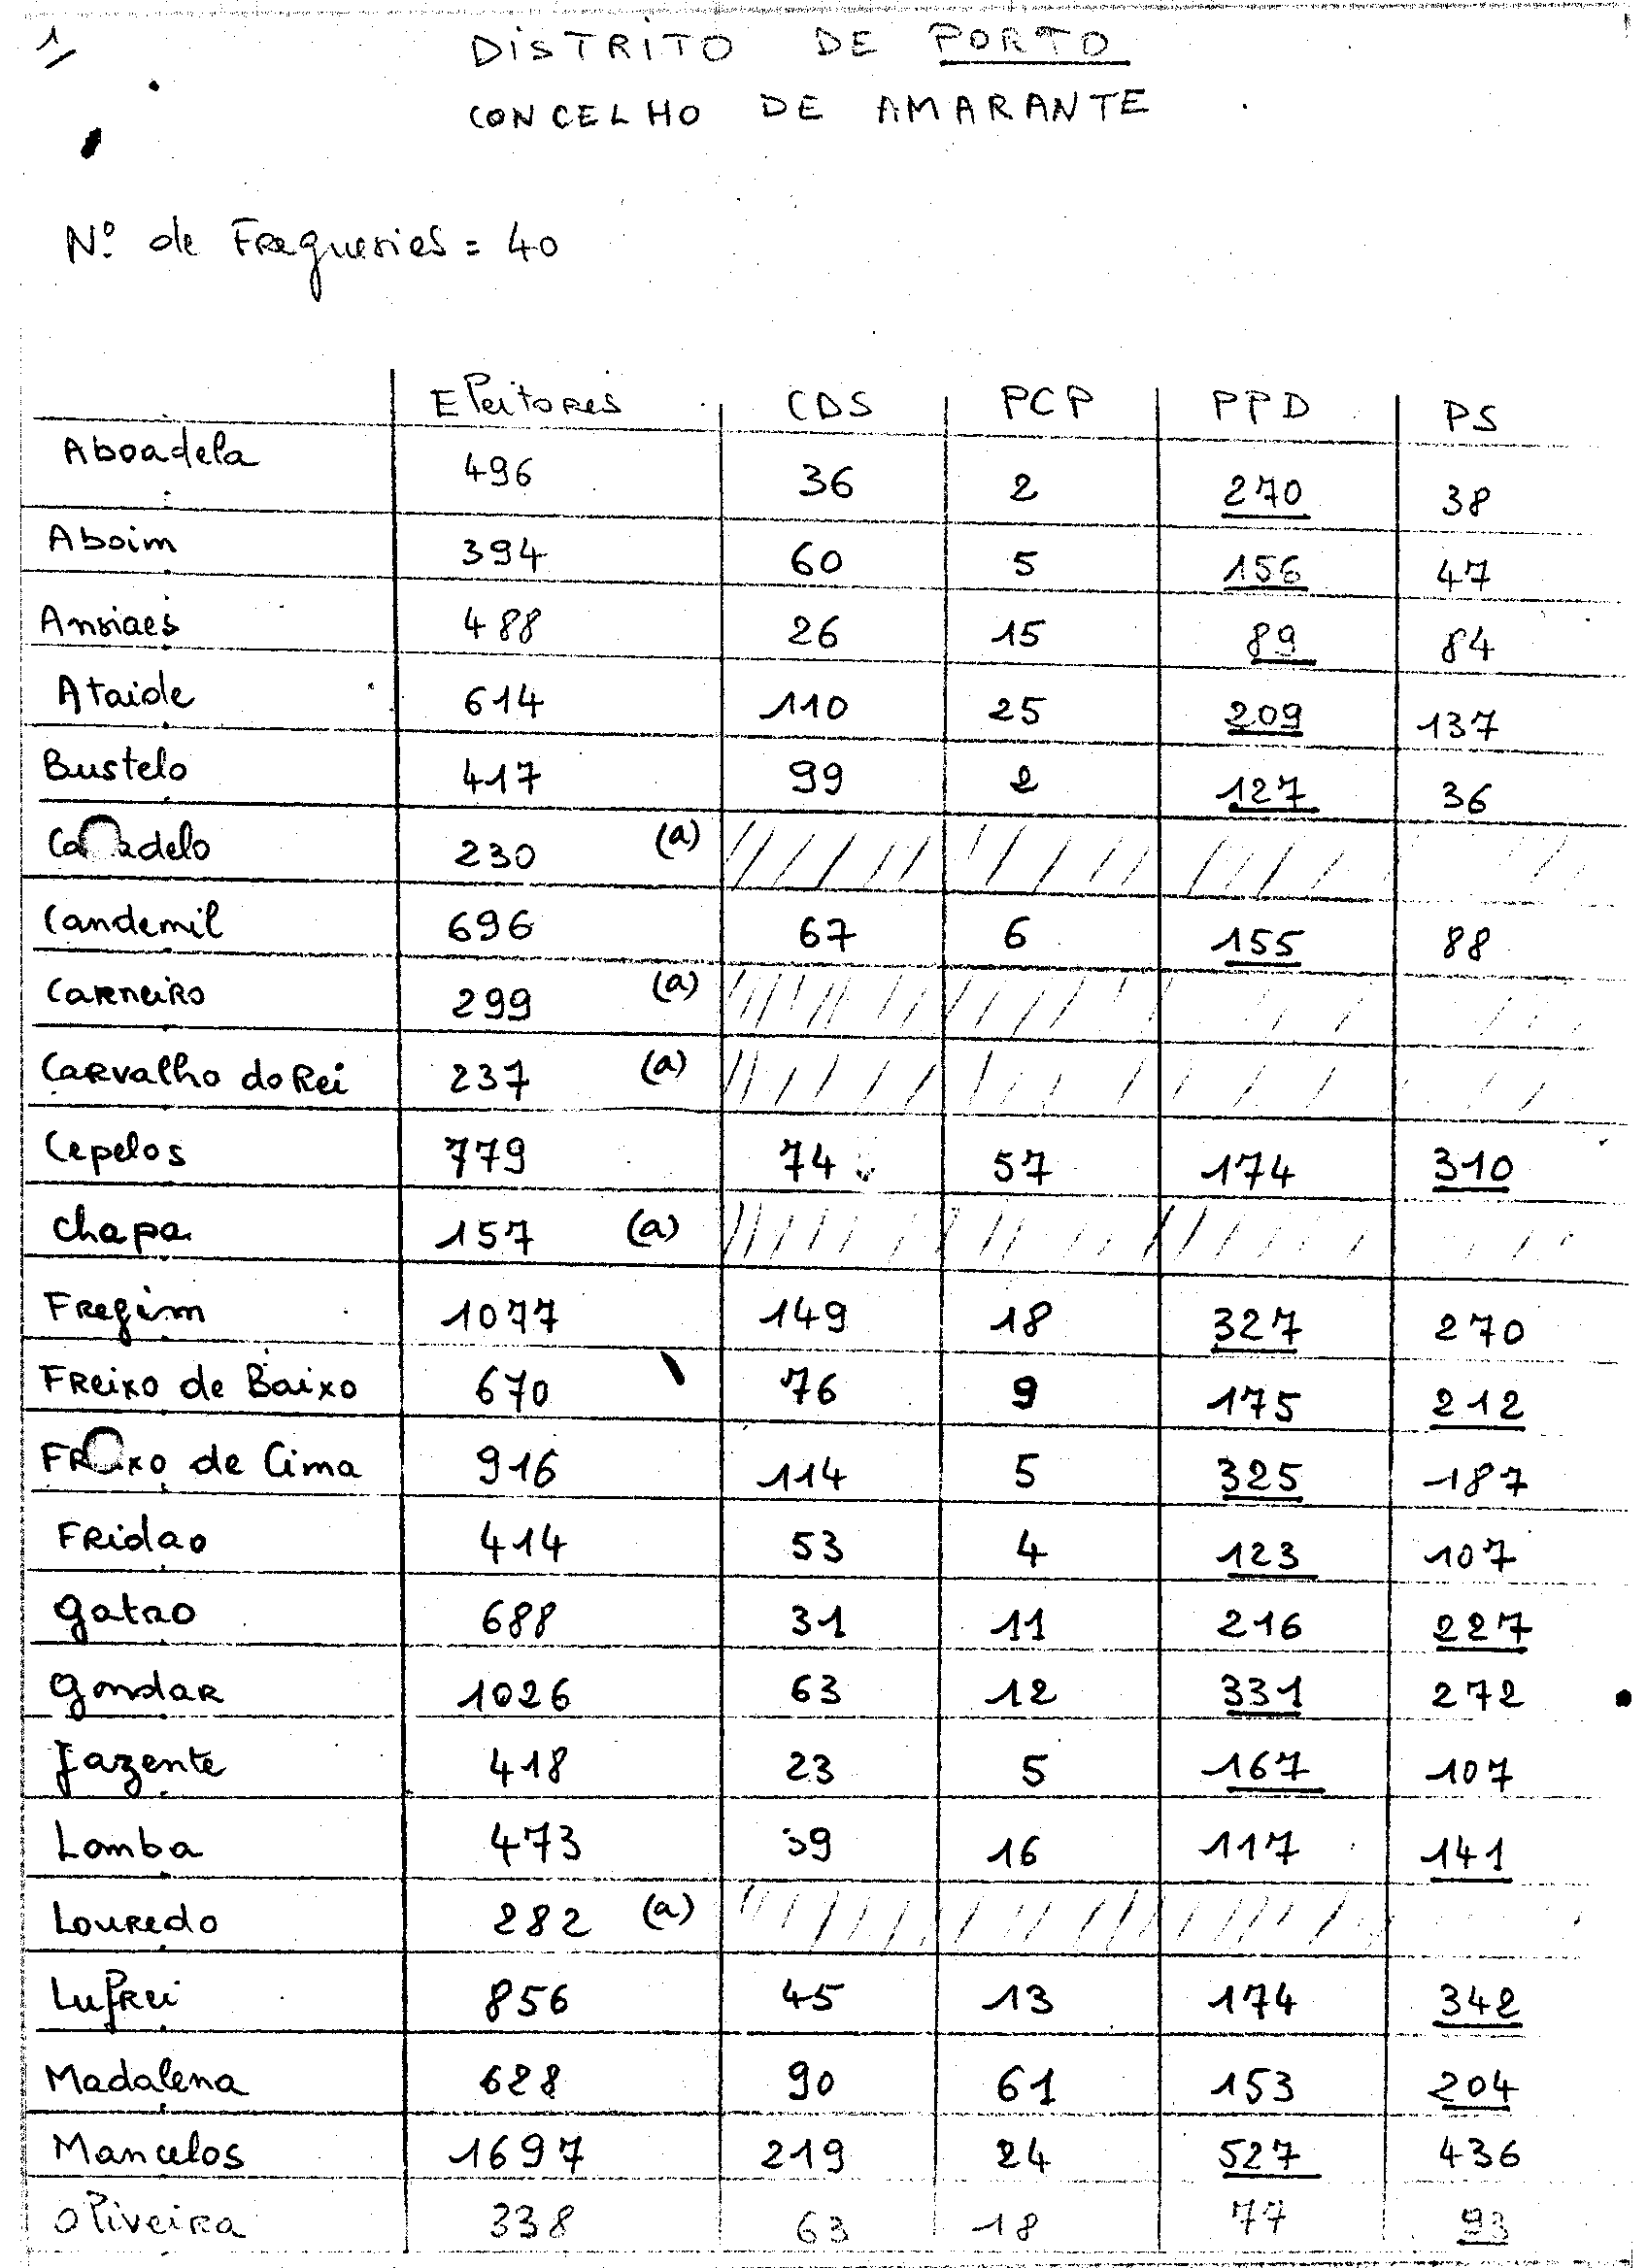 1
DISTRITO DE PORTO
CONCELHO DE AMARANTE
Nº de Freguesias = 40
Eleitores CDS PCP PPD PS
Aboadela 496 36 2 270 38
Aboim 394 60 5 156 47
Ansiaes 488 26 15 89 84
Ataide 614 110 25 209 137
Bustelo 417 99 2 127 36
230 (a)
Candemil 696 67 6 155 88
Carneiro 299 (a)
Carvalho do Rei 237 (a)
Cepelos 779 74 57 174 310
Chapa 157 (a)
Fregim 1077 149 18 327 270
Freixo de Baixo 670 76 9 175 212
de Cima 916 114 5 325 187
Fridao 414 53 4 123 107
Gatao 688 31 11 216 227
Gondar 1026 63 12 331 272
Jazente 418 23 5 167 107
Lomba 473 39 16 117 141
Louredo 282 (a)
Lufrei 856 45 13 174 342
Madalena 628 90 61 153 204
Mancelos 1697 219 24 527 436
Oliveira 338 63 18 77 93